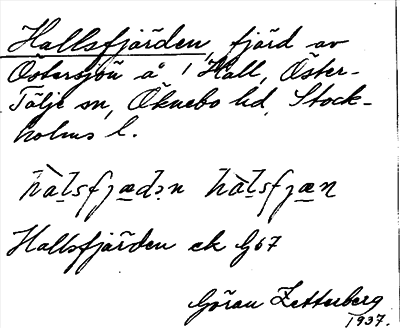 Hallsfjärden, fjärd av
Östersjön å 1 Hall, Öster-
Tälje sn, Öknebo hd, Stock-
holms l.
hàlsfjædən hàlsfjæn
Hallsfjärden ek G67
Göran Zetterberg
1937.